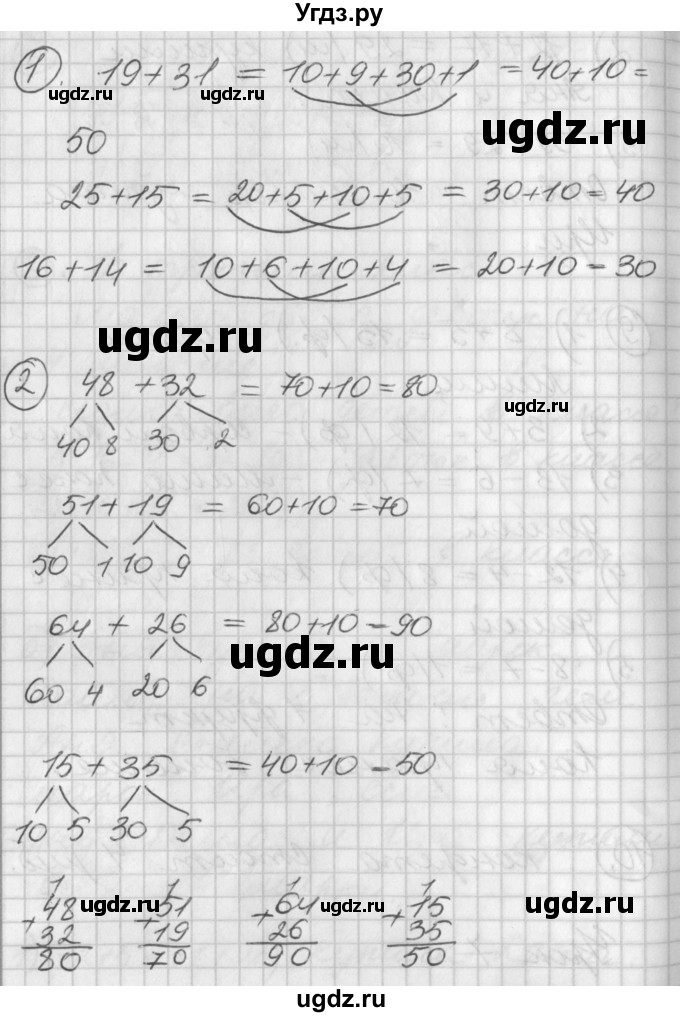 Угдз.ру
1. 19+31 = 10+9+30+1 = 40+10 =
ugdz.ru ugdz.ru
ugdz.ru
50
25+15 = 20+5+10+5 = 30+10=40
16+14 = 10+6+10+4 = 20+10=30
ugdz.ru
2 48+32 = 70+10=80
ugdz.ru
40 8 30 2
51+19 = 60+10=70
50 1 10 9
64+26 = 80+10=90
ugdz.ru
60 4 20 6
15+35 = 40+10=50
10 5 30 5
1 1 1 1
+48 +51 +64 +15
ugdz.ru ugdz.ru
32 19 26 35
80 70 90 50
ugdz.ru